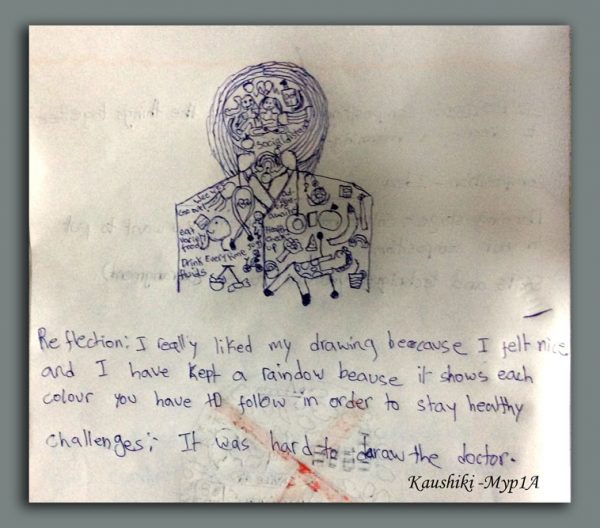 Socialites
eat
Variety
food
Drink Everytime
fluids
Reflection: I really liked my drawing beacause I felt nice
and I have kept a raindow beause it shows each
colour you have to follow in order to stay healthy
challenges: It was hard to draw the doctor.
Kaushiki -Myp1A